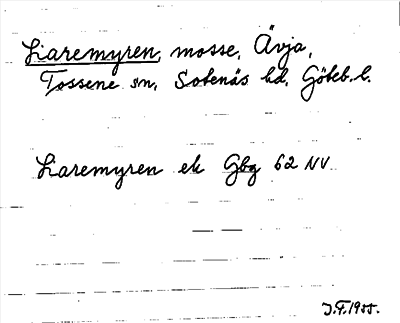 Liaremyren, mosse, Ävja,
Tossene sn, Sotenäs hd, Göteb. l.
Liaremyren ek Gbg 62 NV
J.F. 1955.